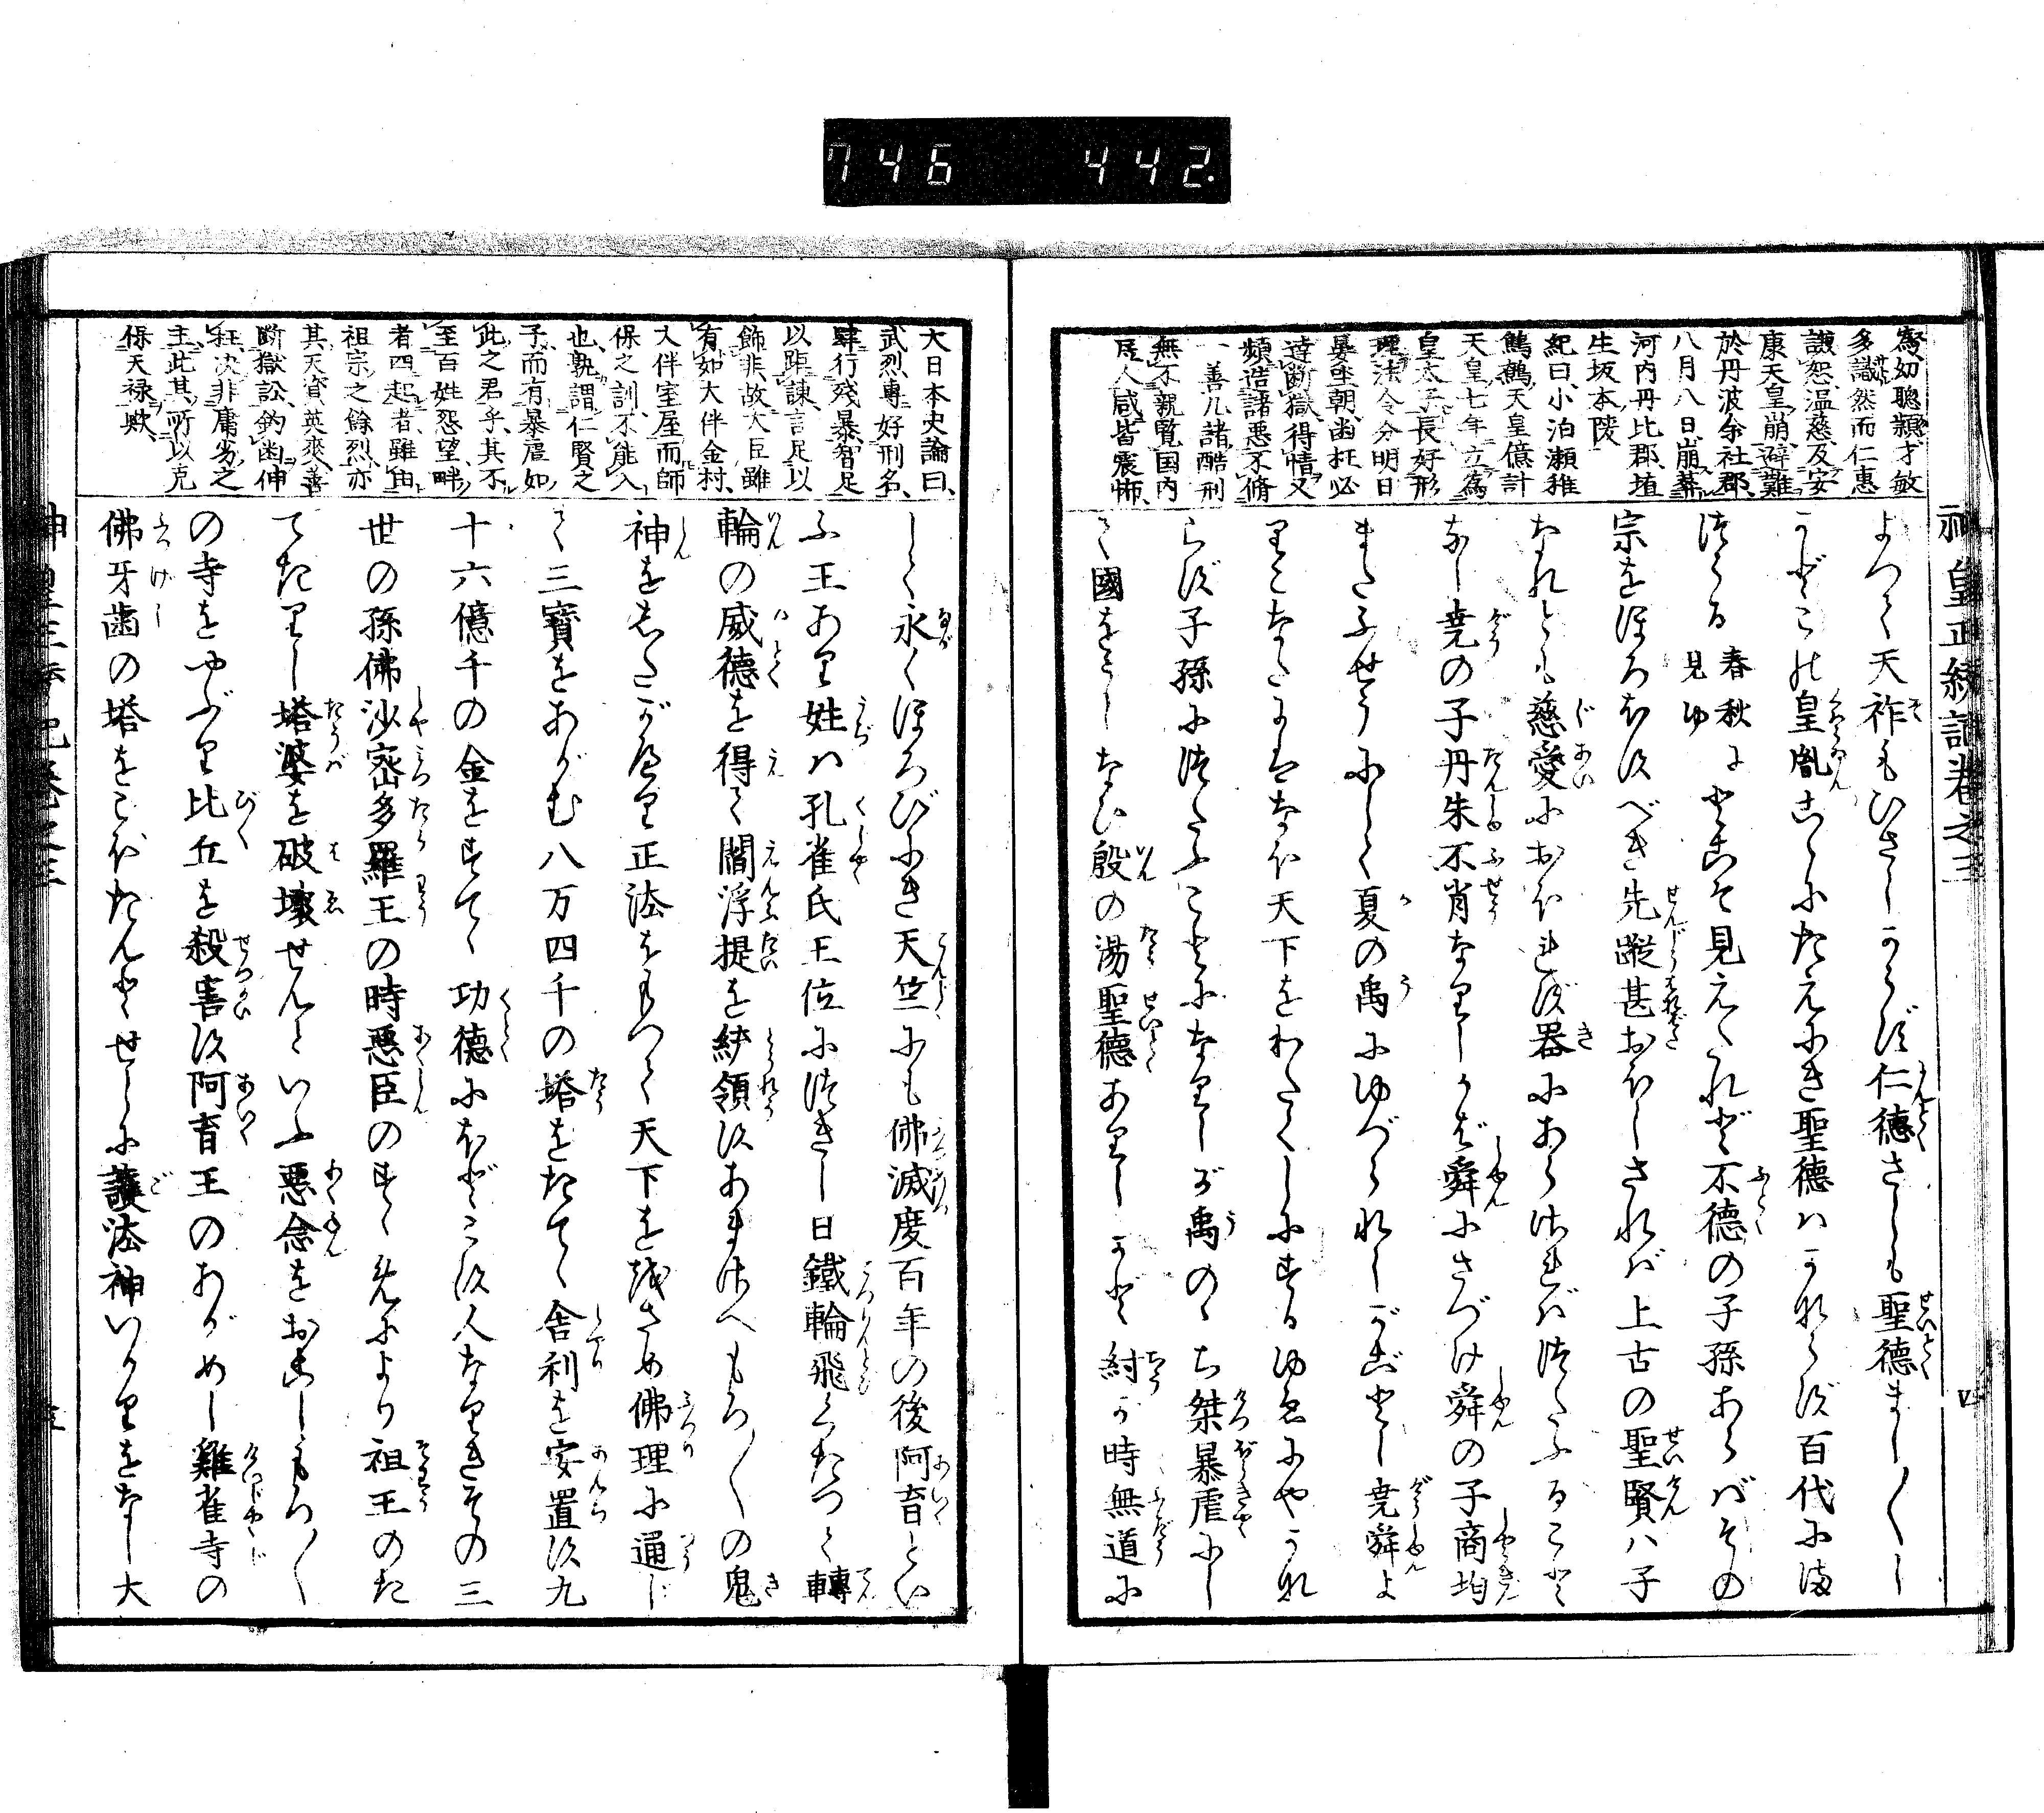 746 442.
爲幼聰穎才敏
多識然而仁惠
謙恕温慈及安
康天皇崩避難
於丹波余社郡
八月八日崩葬
河内丹比郡埴
生坂本陵
紀曰小泊瀬稚
鷦鷯天皇億計
天皇七年立爲
皇太子長好形
理法令分明日
晏坐朝幽枉必
達斷獄得情又
頻造諸悪不脩
一善凡諸酷刑
無不親覧国内
居人咸皆震怖
よつて天祚もひさしからず仁徳さしも聖徳ましゝゝし
かどこの皇胤こゝにたえにき聖徳はかならず百代にま
つらる春秋に見ゆとこそ見えたれど不徳の子孫あらばその
宗をほろぼすべき先蹤甚おほしされバ上古の聖賢ハ子
なれども慈愛におぼれず器にあらざれバつたふること
なし堯の子丹朱不肖なりしかば舜にさづけ舜の子商均
またふせうにして夏の禹にゆづられしがごとし堯舜よ
りこなたにはなほ天下をわたくしにするゆゑにやかな
らず子孫につたふことになりしが禹のゝち桀暴虐にし
て國をうしなひ殷の湯聖徳ありしかど紂が時無道に
大日本史論曰
武烈專好刑名
肆行殘暴智足
以距諫言足以
飾非故大臣雖
有如大伴金村
大伴室屋而師
保之訓不能入
也孰謂仁賢之
子而有暴虐如
此之君乎其不
至百姓怨望畔
者四起者雖由
祖宗之餘烈亦
其天資英爽善
斷獄訟鈎幽伸
枉決非庸劣之
主此其所以克
保天禄歟
して永くほろびにき天竺にも佛滅度百年の後阿育とい
ふ王あり姓ハ孔雀氏王位につきし日鐵輪飛くだつて轉
輪の威徳を得て閻浮提を統領すあまさへもろ〱の鬼
神をしたがへり正法をもつて天下をおさめ佛理に通じ
て三寶をあがむ八万四千の塔をたてゝ舎利を安置す九
十六億千の金をすてゝ功徳にほどこす人なりきその三
世の孫佛沙密多羅王の時悪臣のすゝめにより祖王のた
てたりし塔婆を破壊せんといふ悪念をおこしもろ〱
の寺をやぶり比丘を殺害す阿育王のあがめし雞雀寺の
佛牙歯の塔をこぼたんとせしに護法神いかりをなし大